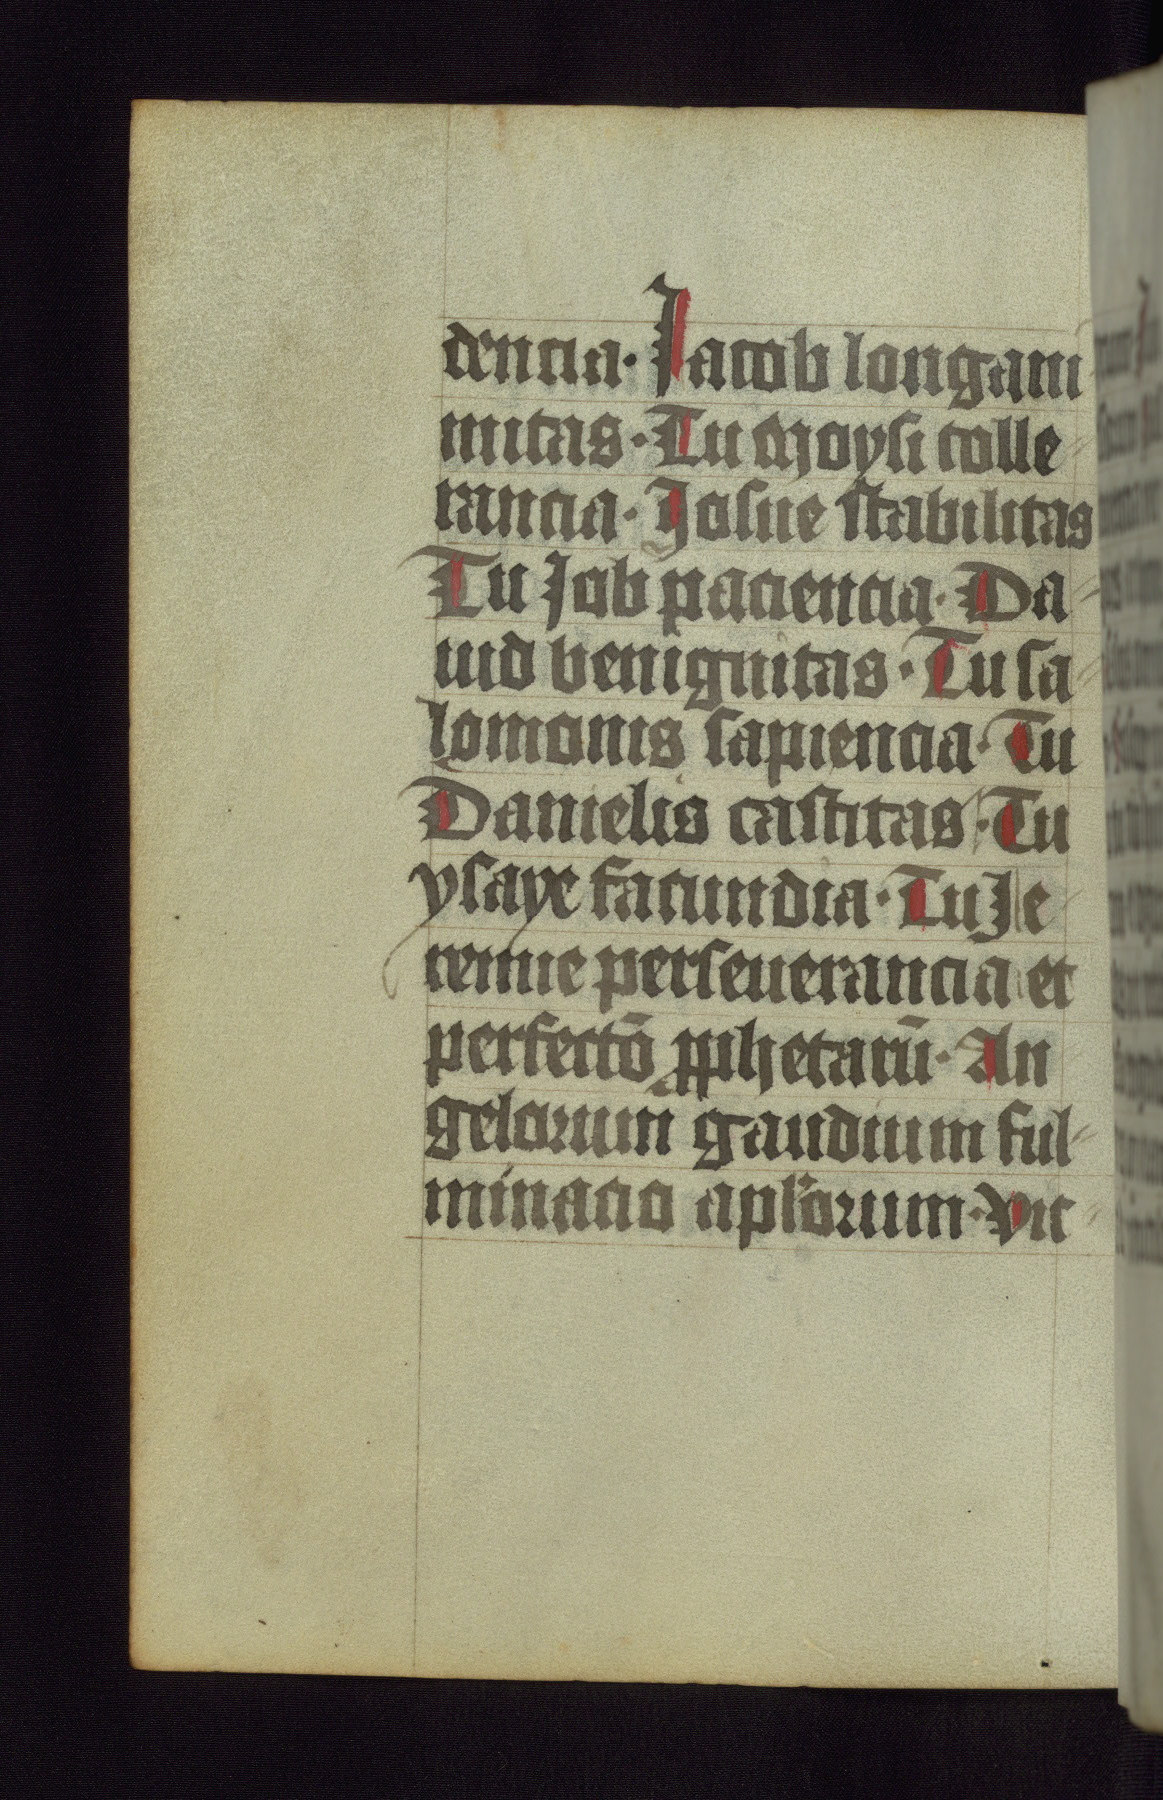 dencia · Jacob longani
mitas · Tu Moysi tolle
rancia · Josue stabilitas
Tu Job paciencia · Da
uid benignitas · Tu sa
lomonis sapiencia · Tu
Danielis castitas · Tu
ysaye facundia · Tu Je
remie perseuerancia et
perfectō pphetarū · An
gelorum gaudium ful
minacio aplorum · Vic